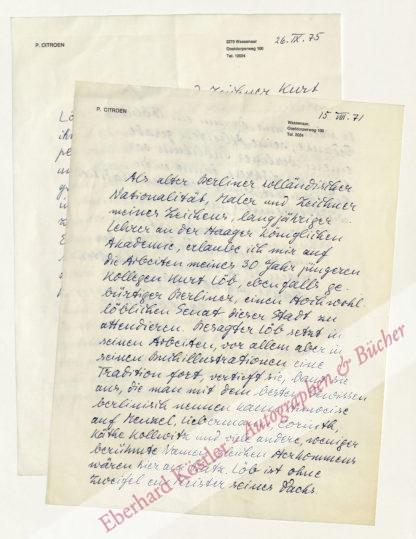 P. CITROEN
2270 Wassenaar
Oostdorperweg 100
Tel. 12034
26. IX. 75
Kurt
P. CITROEN
Wassenaar,
Oostdorperweg 100
15 VIII. 71
Als alter Berliner holländischer
Nationalität, Maler und Zeichner
meines Zeichens, langjähriger
Lehrer an der Haager Königlichen
Akademie, erlaube ich mir auf
die Arbeiten meines 30 Jahr jüngeren
Kollegen Kurt Löb, ebenfalls ge-
bürtiger Berliner, einen Hochwohl-
löblichen Senat dieser Stadt zu
attendieren. Besagter Löb setzt in
seinen Arbeiten, vor allem aber in
seinen Buchillustrationen eine
Tradition fort, vertieft sie, baut sie
aus, die man mit dem besten Gewissen
berlinisch nennen kann
auf Menzel, Liebermann, Corinth,
Käthe Kollwitz und viele andere, weniger
berühmte Namen gleichen Herkommens
wären hier auf Löb ist ohne
Zweifel ein Meister seines Fachs.
Eberhard Köstler Autographen & Bücher